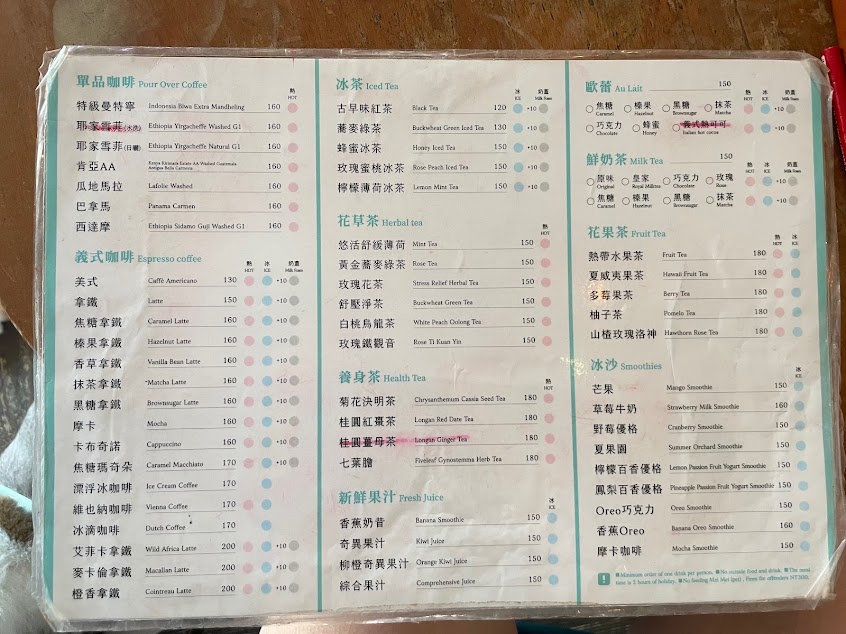 單品咖啡 Pour Over Coffee
熱
HOT
特級曼特寧 Indonesia Biwa Extra Mandheling 160
耶家雪菲(水洗) Ethiopia Yirgacheffe Washed G1 160
耶家雪菲(日曬) Ethiopia Yirgacheffe Natural G1 160
肯亞AA 160
瓜地馬拉 Lafolie Washed 160
巴拿馬 Panama Carmen 160
西達摩 Ethiopia Sidamo Guji Washed G1 160
義式咖啡 Espresso coffee
熱 冰 奶蓋
HOT ICE Milk Foam
美式 Caffè Americano 130 +10
拿鐵 Latte 150 +10
焦糖拿鐵 Caramel Latte 160 +10
榛果拿鐵 Hazelnut Latte 160 +10
香草拿鐵 Vanilla Bean Latte 160 +10
抹茶拿鐵 Matcha Latte 160 +10
黑糖拿鐵 Brownsugar Latte 160 +10
摩卡 Mocha 160 +10
卡布奇諾 Cappuccino 160 +10
焦糖瑪奇朵 Caramel Macchiato 170 +10
漂浮冰咖啡 Ice Cream Coffee 170
維也納咖啡 Vienna Coffee 170
冰滴咖啡 Dutch Coffee 170
艾菲卡拿鐵 Wild Africa Latte 200 +10
麥卡倫拿鐵 Macallan Latte 200 +10
橙香拿鐵 Cointreau Latte 200 +10
冰茶 Iced Tea
冰 奶蓋
ICE Milk Foam
古早味紅茶 Black Tea 120 +10
蕎麥綠茶 Buckwheat Green Iced Tea 130 +10
蜂蜜冰茶 Honey Iced Tea 150 +10
玫瑰蜜桃冰茶 Rose Peach Iced Tea 150 +10
檸檬薄荷冰茶 Lemon Mint Tea 150 +10
花草茶 Herbal tea
熱
HOT
悠活舒緩薄荷 Mint Tea 150
黃金蕎麥綠茶 Rose Tea 150
玫瑰花茶 Stress Relief Herbal Tea 150
舒壓淨茶 Buckwheat Green Tea 150
白桃烏龍茶 White Peach Oolong Tea 150
玫瑰鐵觀音 Rose Ti Kuan Yin 150
養身茶 Health Tea
熱
HOT
菊花決明茶 Chrysanthemum Cassia Seed Tea 180
桂圓紅棗茶 Longan Red Date Tea 180
桂圓薑母茶 Longan Ginger Tea 180
七葉膽 Fiveleaf Gynostemma Herb Tea 180
新鮮果汁 Fresh Juice
冰
ICE
香蕉奶昔 Banana Smoothie 150
奇異果汁 Kiwi Juice 150
柳橙奇異果汁 Orange Kiwi Juice 150
綜合果汁 Comprehensive Juice 150
歐蕾 Au Lait 150
熱 冰 奶蓋
HOT ICE Milk Foam
焦糖 榛果 黑糖 抹茶 +10
Caramel Hazelnut Brownsugar Matcha
巧克力 蜂蜜 義式熱可可 +10
Chocolate Honey Italian hot cocoa
鮮奶茶 Milk Tea 150
熱 冰 奶蓋
HOT ICE Milk Foam
原味 皇家 巧克力 玫瑰 +10
Original Royal Milktea Chocolate Rose
焦糖 榛果 黑糖 抹茶 +10
Caramel Hazelnut Brownsugar Matcha
花果茶 Fruit Tea
熱 冰
HOT ICE
熱帶水果茶 Fruit Tea 180
夏威夷果茶 Hawaii Fruit Tea 180
多莓果茶 Berry Tea 180
柚子茶 Pomelo Tea 180
山楂玫瑰洛神 Hawthorn Rose Tea 180
冰沙 Smoothies
冰
ICE
芒果 Mango Smoothie 150
草莓牛奶 Strawberry Milk Smoothie 160
野莓優格 Cranberry Smoothie 150
夏果園 Summer Orchard Smoothie 150
檸檬百香優格 Lemon Passion Fruit Yogurt Smoothie 150
鳳梨百香優格 Pineapple Passion Fruit Yogurt Smoothie 150
Oreo巧克力 Oreo Smoothie 150
香蕉Oreo Banana Oreo Smoothie 160
摩卡咖啡 Mocha Smoothie 150
■Minimum order of one drink per person. ■No outside food and drink. ■The meal
time is 2 hours of holiday.